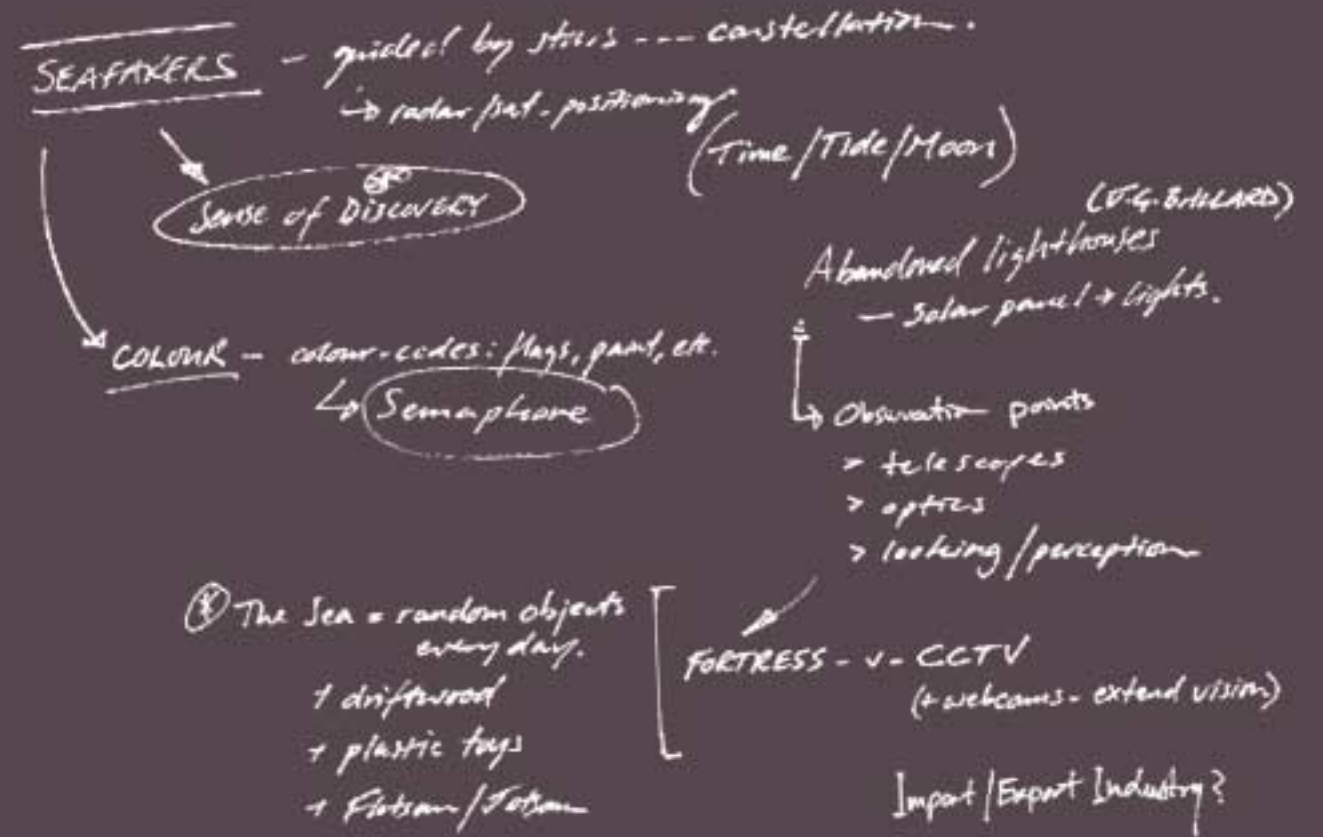 SEAFARERS - guided by stars --- constellation.
→ radar/sat-positioning
(Time/Tide/Moon)
Sense of DISCOVERY
(J.G. BALLARD)
Abandoned lighthouses
- Solar panel → lights.
COLOUR - colour-codes: flags, paint, etc.
↳ Semaphore
↳ Observation points
> telescopes
> optics
> looking/perception
* The Sea = random objects
every day.
+ driftwood
+ plastic toys
+ Flotsam/Jetsam
FORTRESS - v - CCTV
(+ webcams - extend vision)
Import/Export Industry?